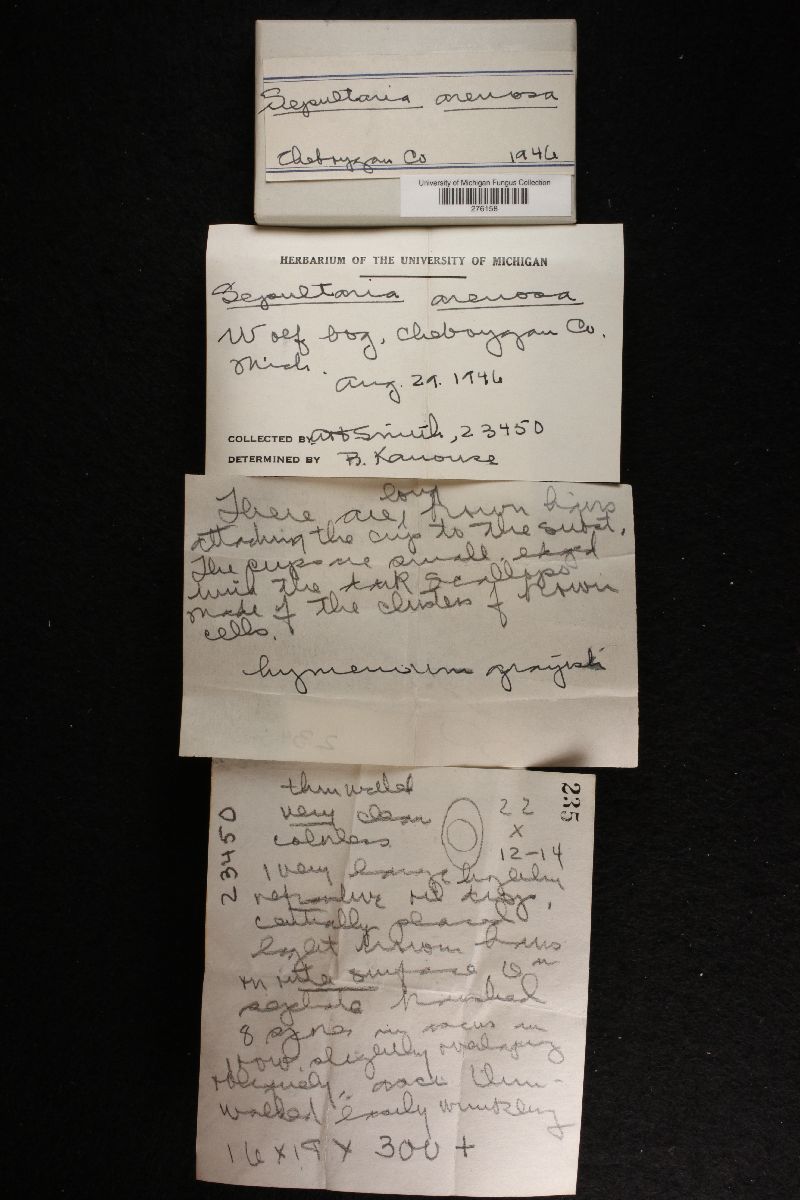 Sepultaria arenosa
Cheboygan Co 1946
University of Michigan Fungus Collection
276158
HERBARIUM OF THE UNIVERSITY OF MICHIGAN
Sepultaria arenosa
Wolf bog, Cheboygan Co.
Mich.
Aug. 29. 1946
COLLECTED BY AH Smith, 23450
DETERMINED BY B. Kanouse
long
There are brown hairs
attaching the cup to the subst.
The cups are small edged
with the dark scallops
made of the clusters of brown
cells.
hymenium grayish
235
23450
thin walled
very clear
colorless
22
x
12-14
1 very large highly
refractive oil drop,
centrally placed
light brown hairs
on surface
septate branched
8 spores in ascus in
1 row, slightly overlaping
obliquely, asci thin-
walled easily wrinkling
16 x 19 x 300 +